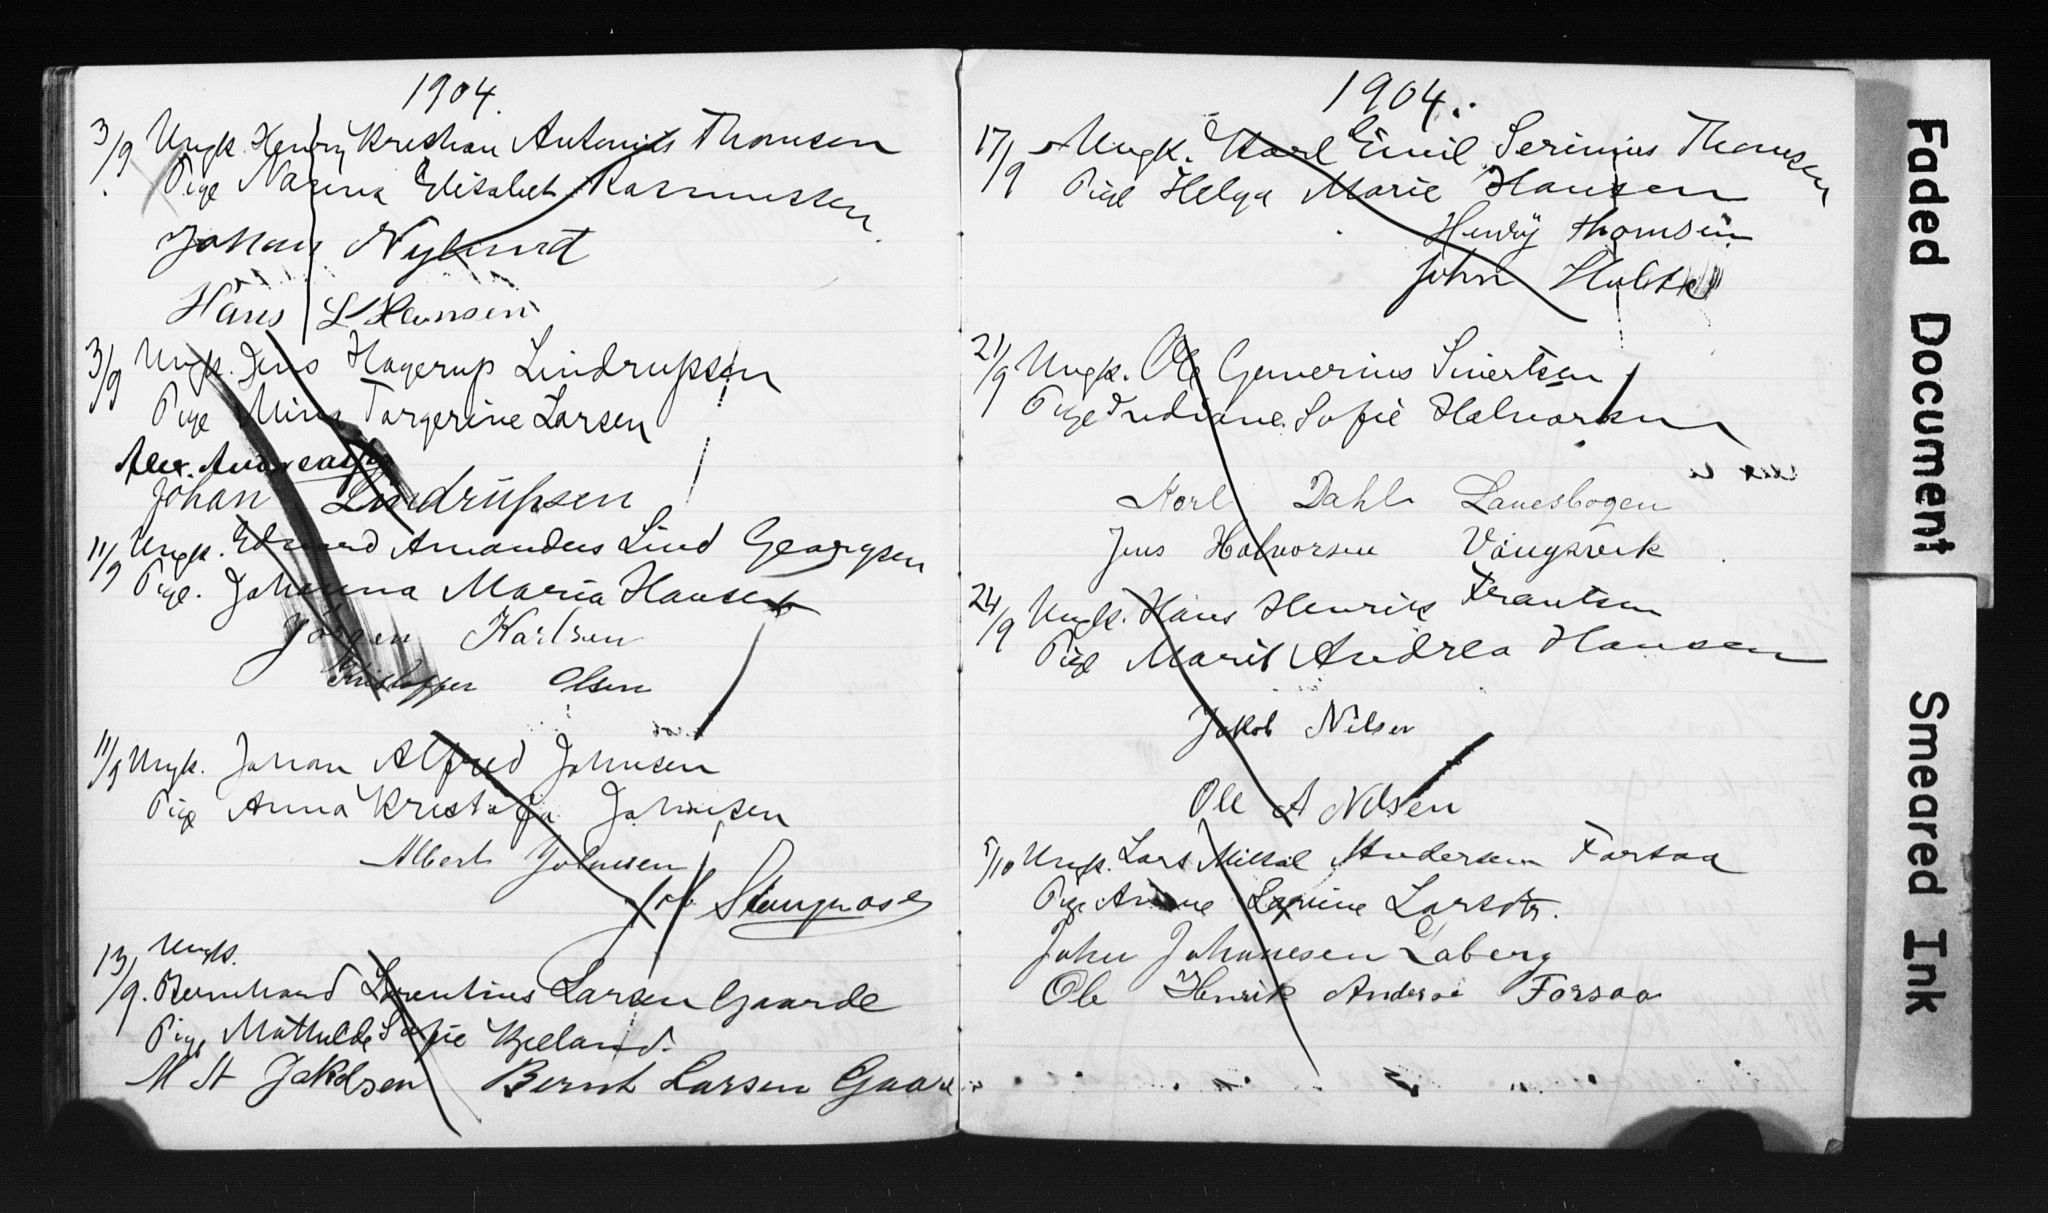 1904.
3/9 Ungk. Henry Kristian Antonius Thomsen
Pige Narina Elisabet Rasmussen
Johan Nylund
Hans L Hansen
3/9 Ungk. Jens Hagerup Lindrupsen
Pige Mina Torgerine Larsen
Alex. Andreassen
Johan Lindrupsen
11/9 Ungk. Edvard Amandus Lind Georgsen
Pige. Johanna Maria Hansen
Jörgen Karlsen
Kristoffer Olsen
11/9 Ungk. Johan Alfred Johnsen
Pige Anna Kristofa Johnsen
Albert Johnsen
Job Stangnose
13/9. Ungk.
Bernhard Lorentius Larsen Gaarde
Pige Mathilde Sofie Kjelland.
M St Jakobsen Bernt Larsen
1904.
17/9 Ungk. Karl Emil Serinius Thomsen
Pige Helga Marie Hansen
Henry Thomsen
John
21/9 Ungk. Ole Gunerius Sivertsen
Pige Indiane Sofie Halvorsen
Karl Dahl Lanesbogen
Jens Halvorsen Vangsvik
24/9 Ungk. Hans Henrik Frantsen
Pige Marit Andrea Hansen
Jakob Nilsen
Ole A Nilsen
5/10 Ungk. Lars Mikal Andersen Forsaa
Pige Larsdtr.
John Johannesen Laberg
Ole Henrik Anderse Forsaa
Faded Document
Smeared Ink